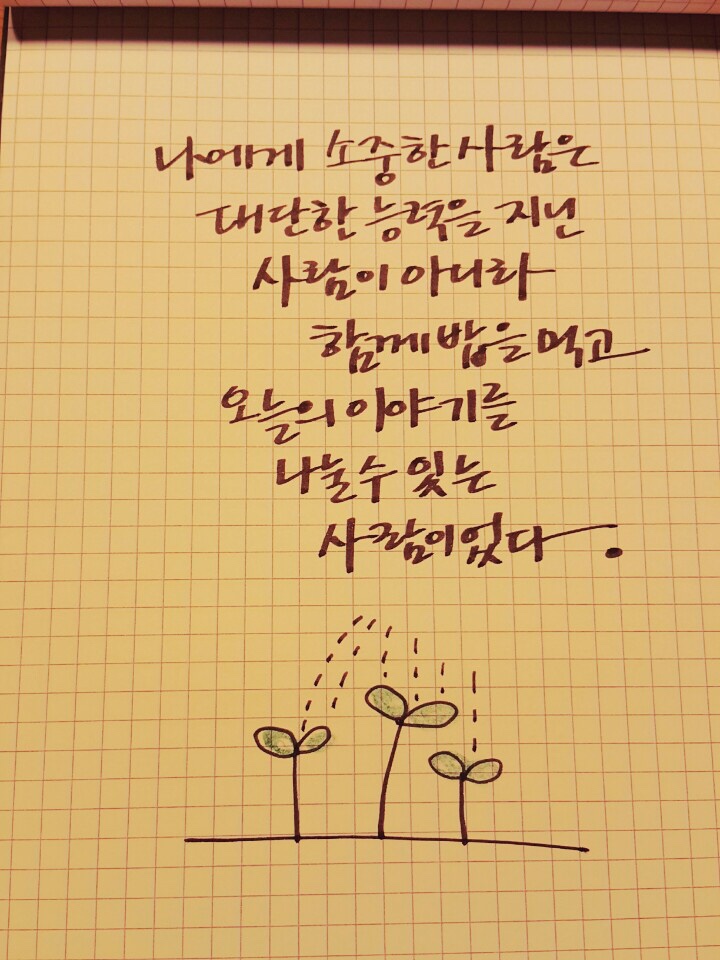 나에게 소중한 사람은
대단한 능력을 지닌
사람이 아니라
함께 밥을 먹고
오늘의 이야기를
나눌 수 있는
사람이었다.